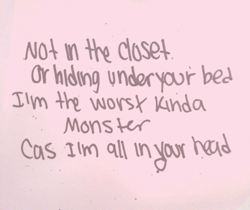 Not in the closet.
Or hiding under your bed
I'm the worst kinda
Monster
Cas I'm all in your head